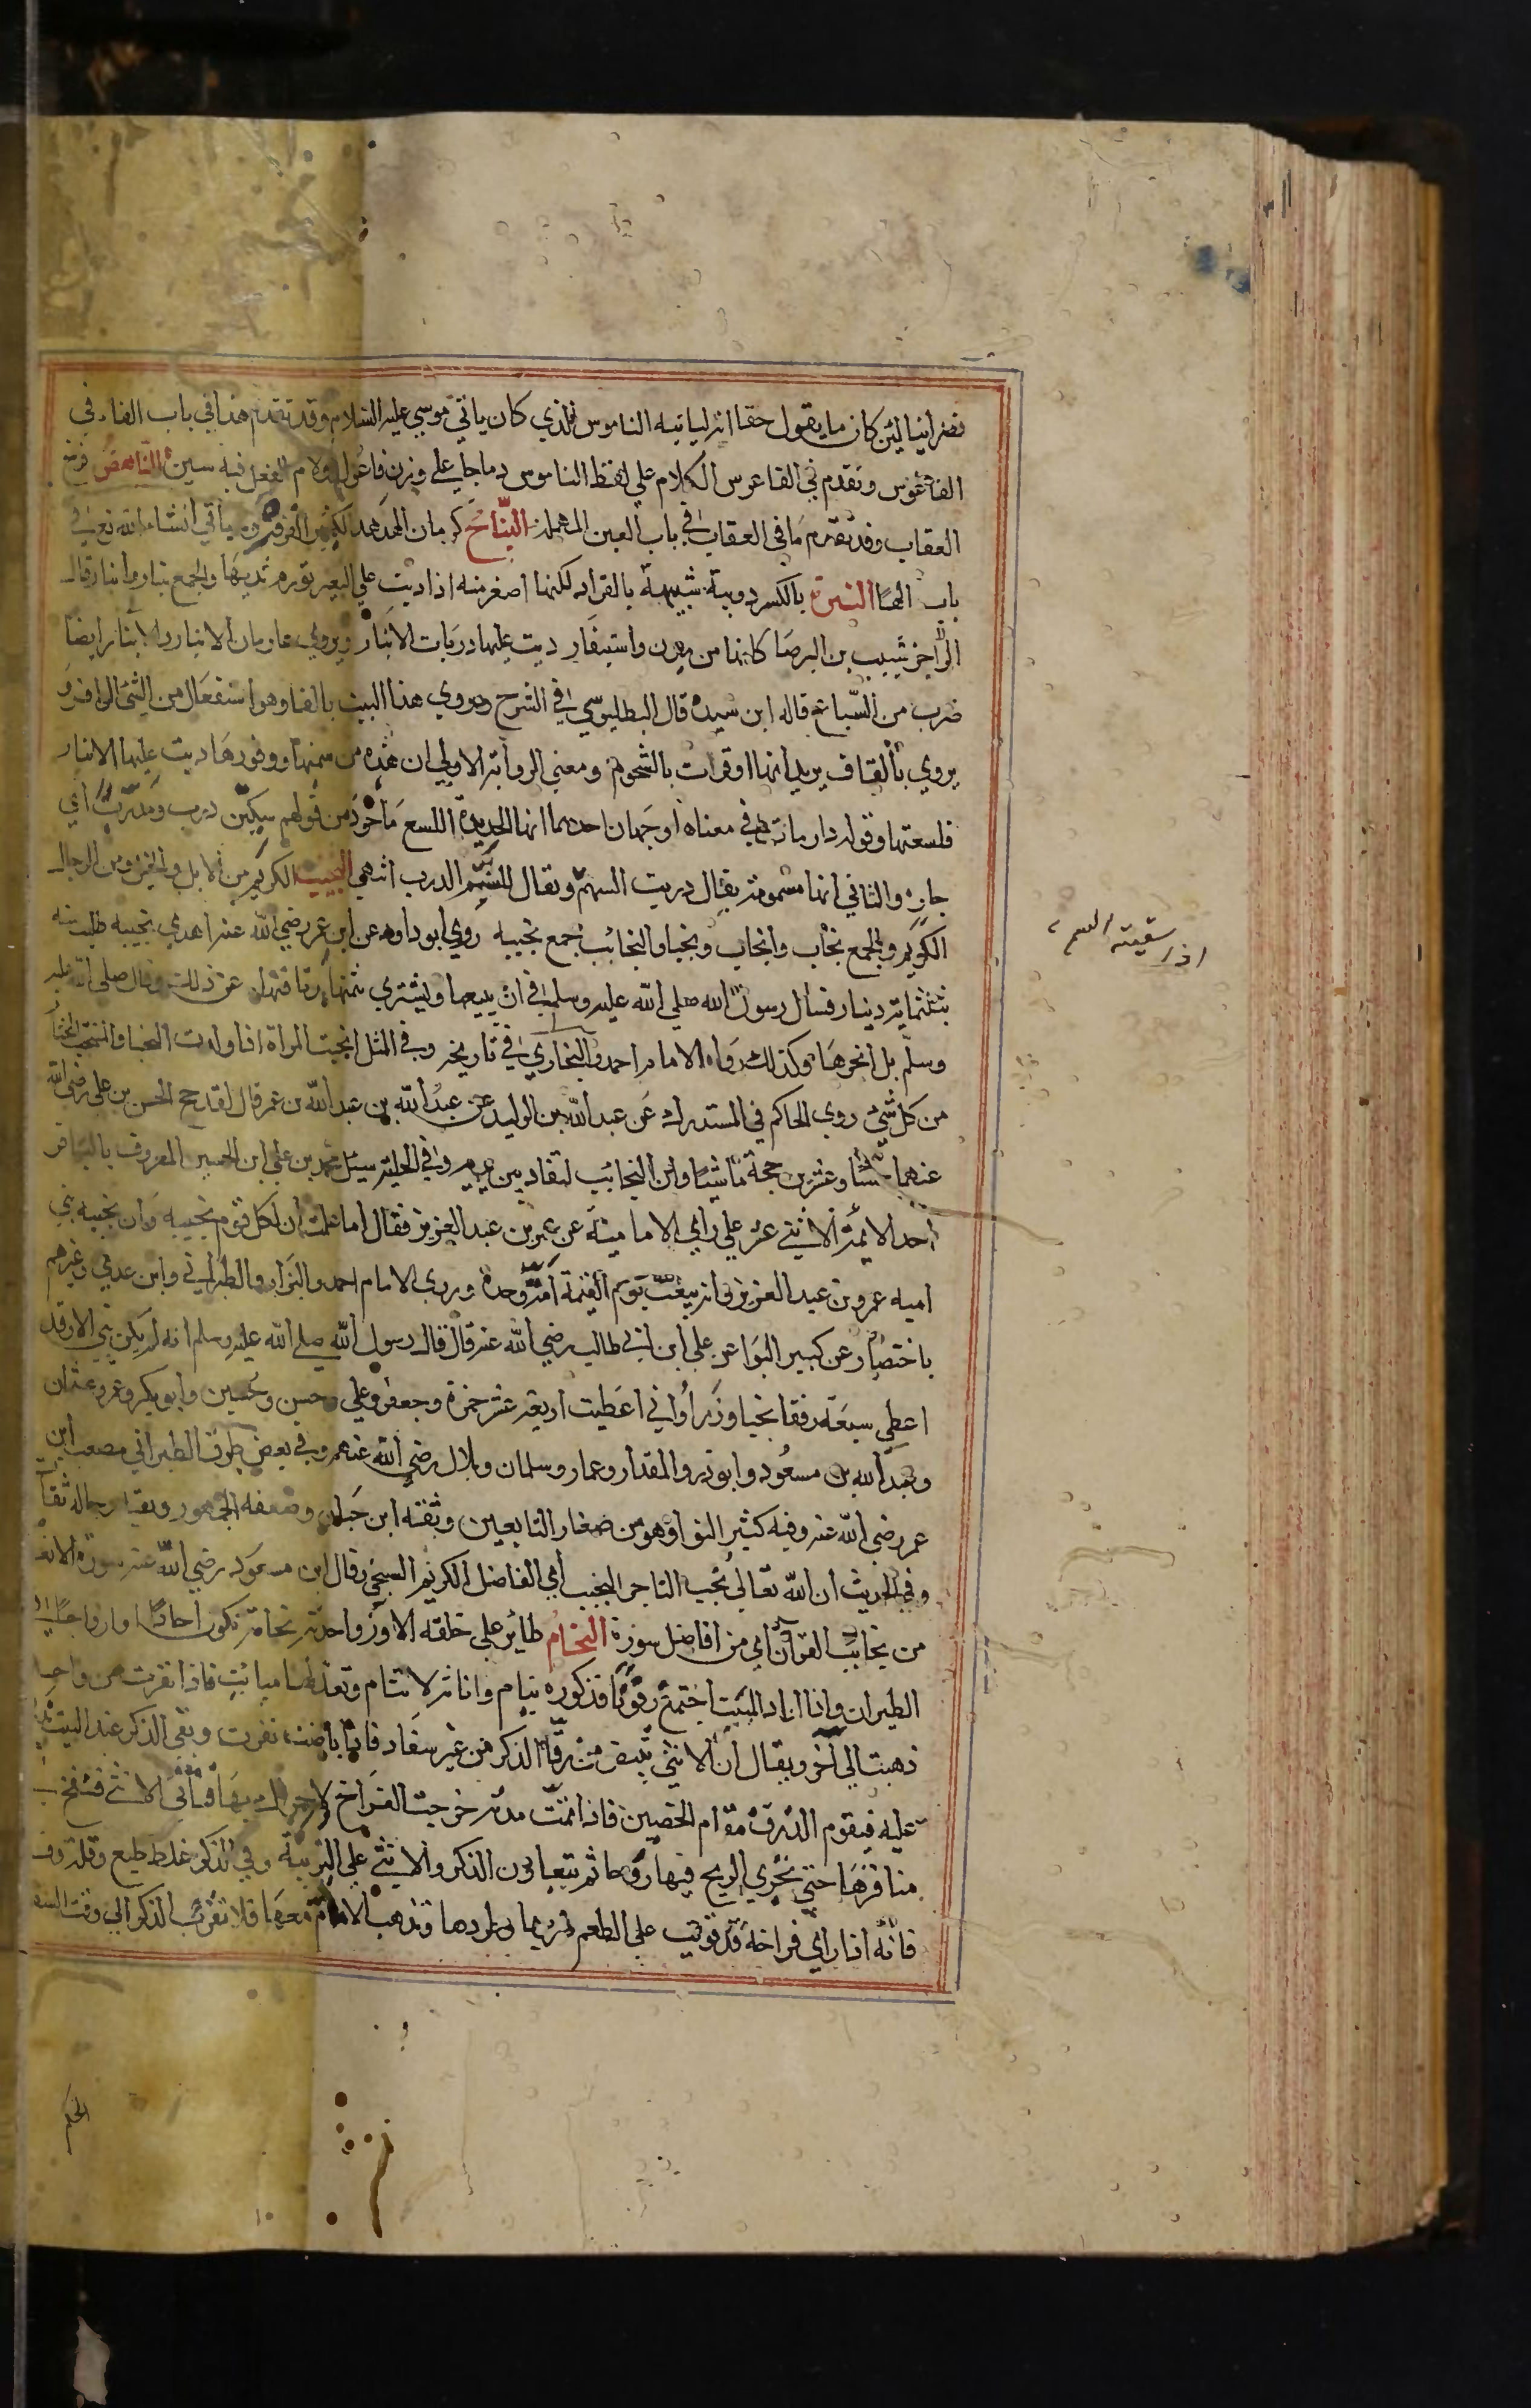 نصرانيا لئن كان ما يقول حقا انه ليأتيه الناموس الذي كان ياتي موسي عليه السلام وقد تقدم هذا في باب الفاء في
الفاعوس وتقدم في القاعوس الكلام علي لفظ الناموس وما جا علي وزن فاعول ولام الفعل فيه سين الناهض فرخ
العقاب وقد تقدم ما في العقاب في باب العين المهملة النباح كرمان الهدهد الكثير القرقرة وسيأتي انشاء الله تعالي في
باب الها النبرة بالكسر دويبة شبيهة بالقراد لكنها اصغر منه اذا دبت علي البعير تورم مدبها والجمع نبار وانبار قال
الراجز شبيب بن البرصا كانها من بدن واستيفار دبت عليها دربات الانبار ويروي عارمات الانبار والانبار ايضا
ضرب من السباع قاله ابن سيده قال البطليوسي في الشرح ويروي هذا البيت بالفا وهو استفعال من الشئ الوافر و
يروي بالقاف يريد انها اوقرت بالشحوم ومعني الرواية الاولي ان هذه من سمنها ووفورها دبت عليها الانبار
فلسعتها وقوله دربات في معناه اوجهان احدهما انها الحديدة اللسع ماخوذ من قولهم سكين درب ومدرب أي
حاد والثاني انها مسمومة يقال دربت السهم ويقال للسم الدرب انتهي النجيب الكريم من الابل والخيل ومن الرجال
الكريم والجمع نجاب وانجاب ونجبا والنجائب جمع نجيبه روي ابو داود عن ابن عمر رضي الله عنه اهدي نجيبه طلبت منه
بثلثماية دينار فسأل رسول الله صلي الله عليه وسلم في ان يبيعها ويشتري بثمنها بدنا فنهاه عن ذلك وقال صلي الله عليه
وسلم بل انحرها وكذلك رواه الامام احمد والبخاري في تاريخه وفي المثل انجبت المراة اذا ولدت النجبا والمنتجب المختار
من كل شئ روي الحاكم في المستدرك عن عبد الله بن الوليد عن عبد الله بن عبد الله بن عمر قال لقد حج الحسن بن علي رضي الله
عنهما خمسًا وعشرين حجة ماشيًا وان النجايب لتقاد بين يديه وفي الحلية سئل محمد بن علي ابن الحسين المعروف بالباقر
احد الائمة الاثني عشر علي راي الامامية عن عمر بن عبد العزيز فقال اما علمت ان لكل قوم نجيبه وان نجيبه بني
اميه عمر بن عبد العزيز وانه يبعث يوم القيمة امة وحده وروي الامام احمد والبزار والطبراني وابن عدي وغيرهم
باختصار عن كبير النوا عن علي ابن ابي طالب رضي الله عنه قال قال رسول الله صلي الله عليه وسلم انه لم يكن نبي الا وقد
اعطي سبعة رفقا نجبا وزرأ واني اعطيت اربعة عشر حمزة وجعفر وعلي وحسن وحسين وابو بكر وعمر وعثمان
وعبد الله بن مسعود وابو ذر والمقداد وعمار وسلمان وبلال رضي الله عنهم وفي بعض طرق الطبراني مصعب ابن
عمر رضي الله عنه وفيه كثير النوا وهو من صغار التابعين وثقه ابن حبان وضعفه الجمهور وبقية رجاله ثقا
وفي الحديث ان الله تعالي يحب التاجر النجيب أي الفاضل الكريم السخي وقال ابن مسعود رضي الله عنه سورة الانعا
من نجايب القرآن اي من افاضل سوره النحام طائر علي خلقه الاوز واحدته نحامة تكون احادًا وازواجًا في
الطيران واذا اراد المبيت اجتمع رفوفا فذكوره تنام واناثه لا تنام وتعد لها مبايت فاذا نفرت من واحد
ذهبت الي آخر ويقال ان الانثي تبيض من زق الذكر من غير سفاد فاذا باضت نفرت وبقي الذكر عند البيت
عليه فيقوم الذرق مقام الحضين فاذا تمت مدته خرجت الفراخ لا حراك بها وتاتي الانثي فتنفخ في
مناقرها حتي تجري الريح فيها روحا ثم يتعاون الذكر والانثي علي التربية وفي الذكر غلظ طبع وقلة وف
فانه اذا راي فراخه قد قويت علي الطعم ضربها وطردها وتذهب الام معها فلا تقرب الذكر الي وقت السفا
اذا سقيته السم
الحكم